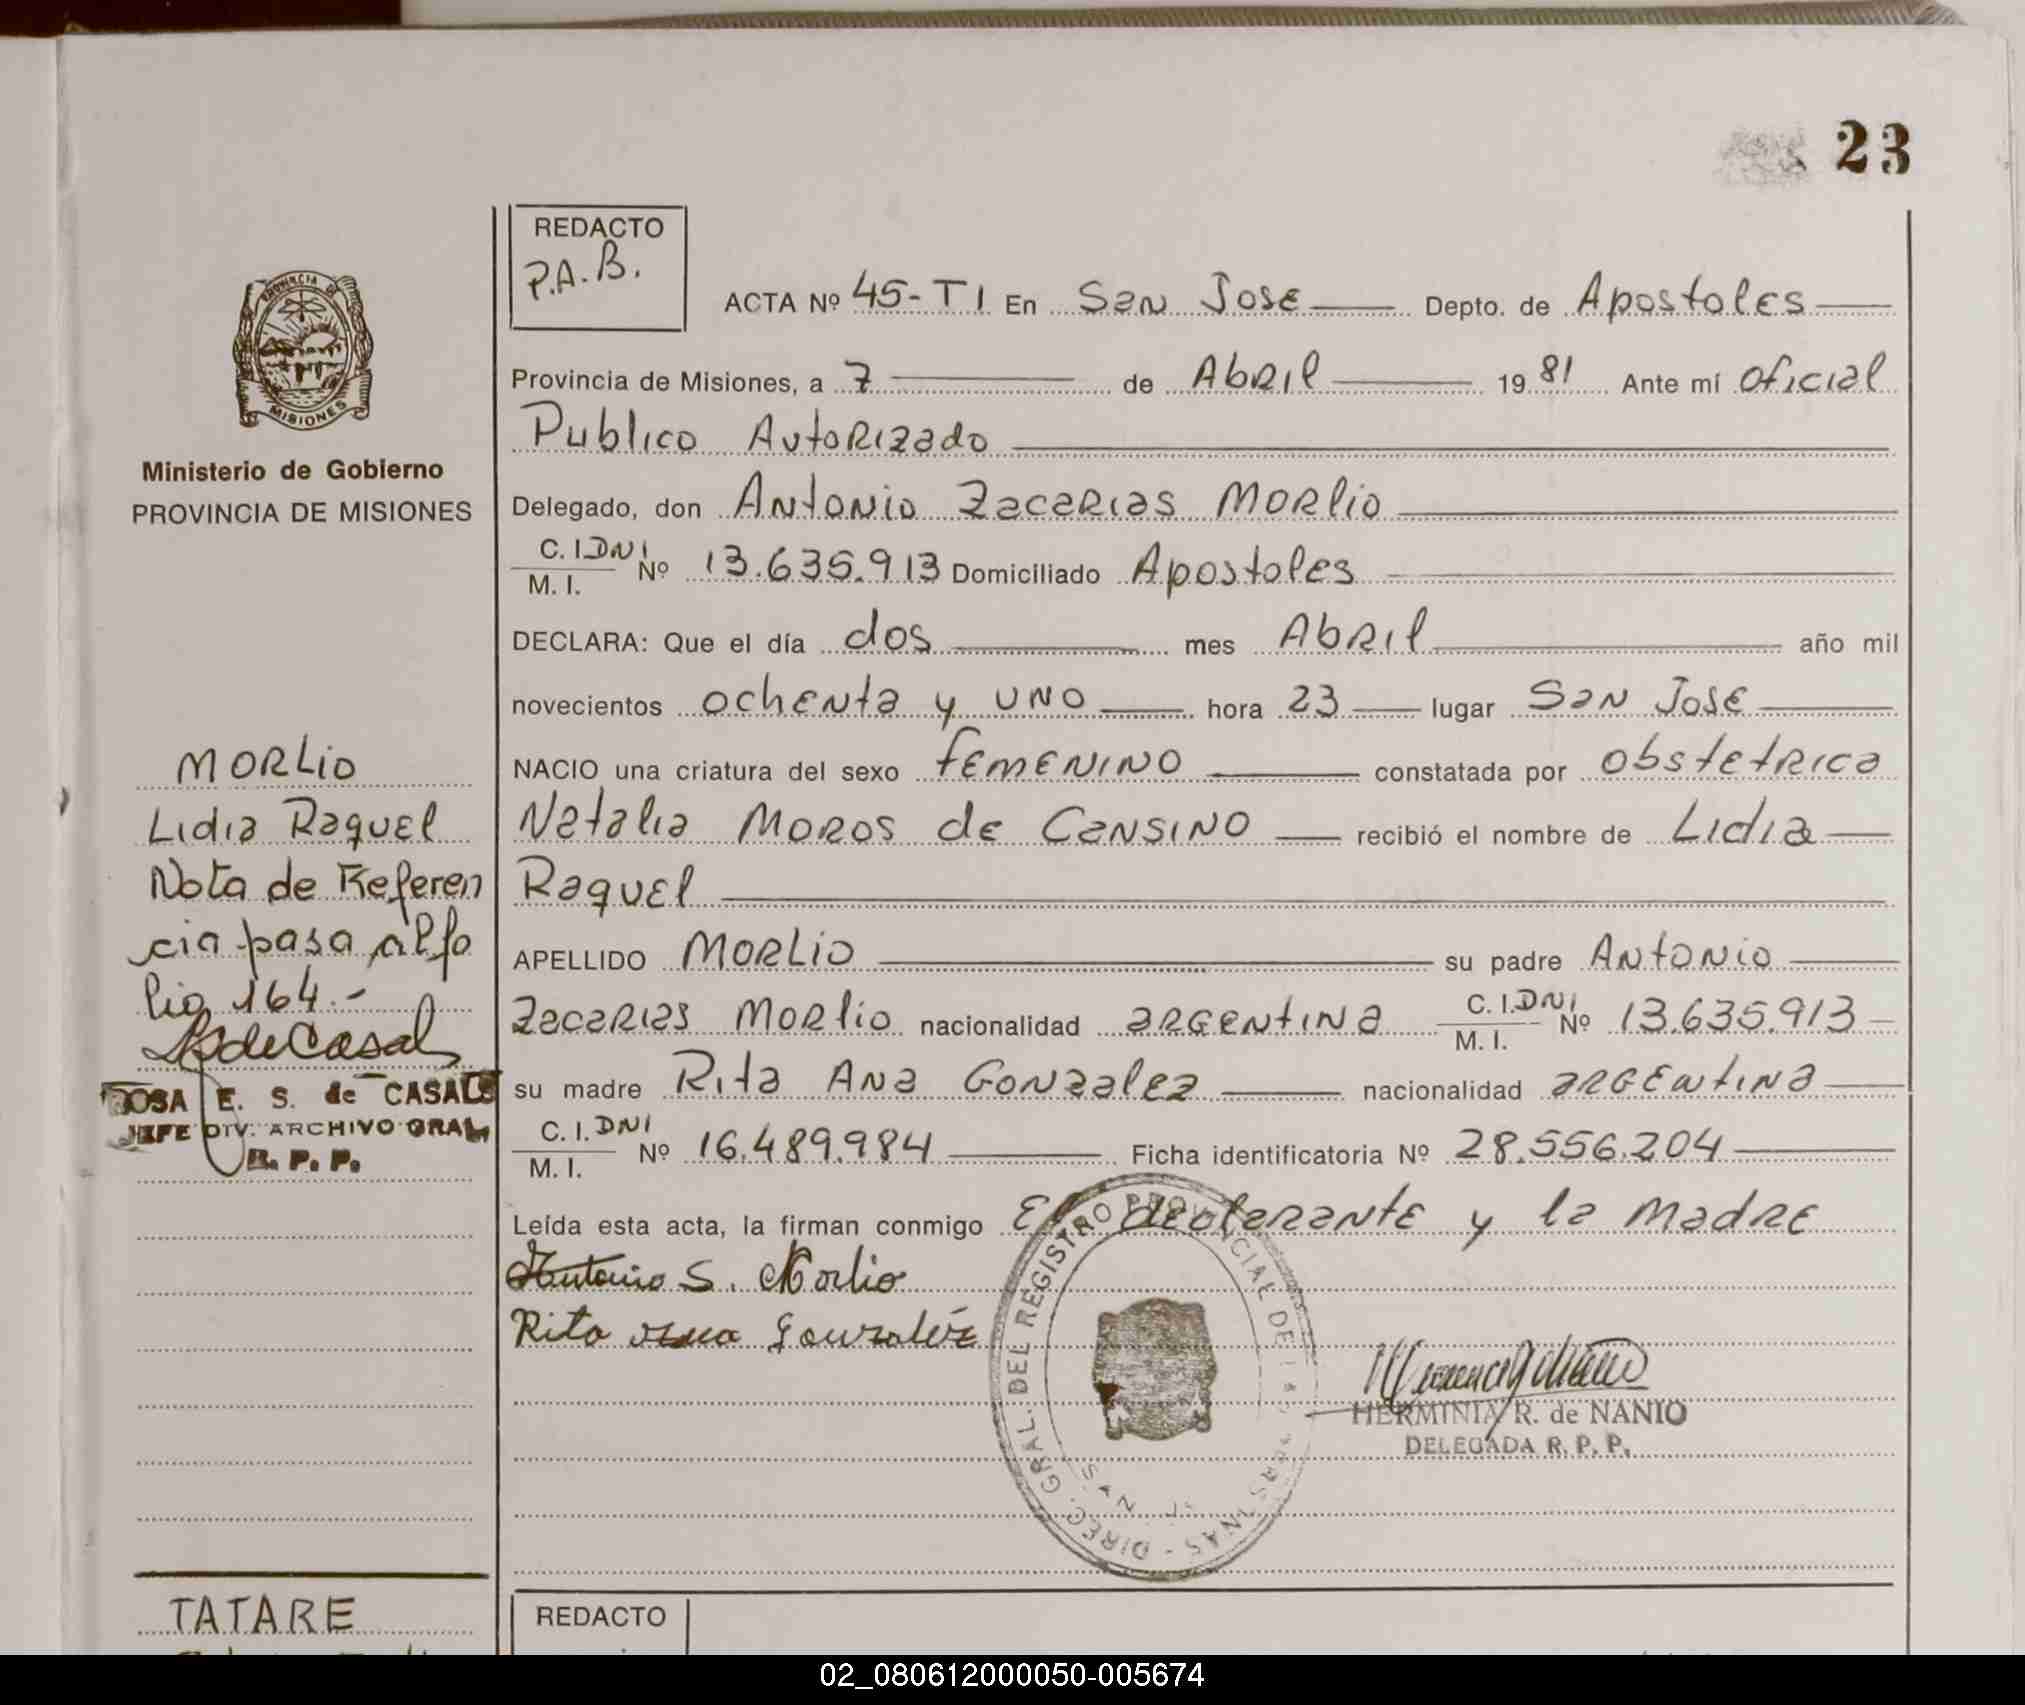 23
REDACTO
P.A.B.
PROVINCIA DE
MISIONES
Ministerio de Gobierno
PROVINCIA DE MISIONES
ACTA Nº 45-T1 En San Jose Depto. de Apostoles
Provincia de Misiones, a 7 de Abril 1981 Ante mí oficial
Publico Autorizado
Delegado, don Antonio Zacarias Morlio
C. I. DNI
M. I. Nº 13.635.913 Domiciliado Apostoles
DECLARA: Que el día dos mes Abril año mil
novecientos ochenta y uno hora 23 lugar San Jose
NACIO una criatura del sexo femenino constatada por obstetrica
Natalia Moros de Cansino recibió el nombre de Lidia
Raquel
APELLIDO Morlio su padre Antonio
Zacarias Morlio nacionalidad argentina C. I. DNI M. I. Nº 13.635.913
su madre Rita Ana Gonzalez nacionalidad argentina
C. I. DNI
M. I. Nº 16.489.984 Ficha identificatoria Nº 28.556.204
Leída esta acta, la firman conmigo El declarante y la madre
Antonio S. Morlio
Rita Ana Gonzaléz
HERMINIA R. de NANIO
DELEGADA R. P. P.
DIREC. GRAL. DEL REGISTRO PROVINCIAL DE LAS PERSONAS
SAN
MORLIO
Lidia Raquel
Nota de Referen
cia pasa al fo
lio 164.-
ROSA E. S. de CASALS
JEFE DIV. ARCHIVO GRAL
R. P. P.
TATARE
REDACTO
02_080612000050-005674